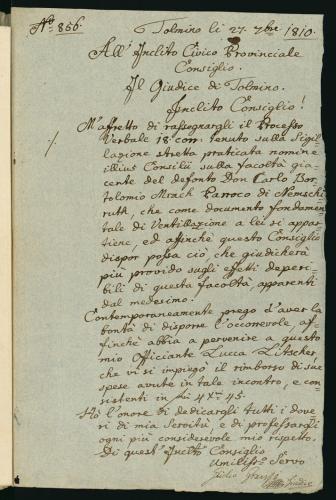 No. 856. Tolmino li 27. 7bre 1810.
All' Inclito Civico Provinciale
Consiglio.
Il Giudice di Tolmino.
Inclito Consiglio!
M'affretto di rassegnargli il Processo
Verbale 18. corr. tenuto sulla Sigil
lazione stretta praticata nomine
illius Consilii sulla facoltà gia-
cente del defonto Don Carlo Bor
tolomio Parroco di
ruth, che come documento fondamen
tale di Ventillazione a lei si appar
tiene, ed affinchè questo Consiglio
dispor possa ciò, che giudicherà
più provido sugli effetti deperi-
bili di questa facoltà, apparenti
dal medesimo.
Contemporaneamente prego d'aver la
bontà di disporre l'occorevole, af-
finchè abbia a pervenire a questo
mio Officiante Lucca Litscher,
che vi si impiegò il rimborso di sue
spese avute in tale incontro, e con-
sistenti in 45.
Hò l'onore di dedicargli tutti i dove
ri di mia Servitù, e di professargli
ogni più considerevole mio rispetto.
Di quest' Inclito Consiglio
Umiliss. Servo
Giudice